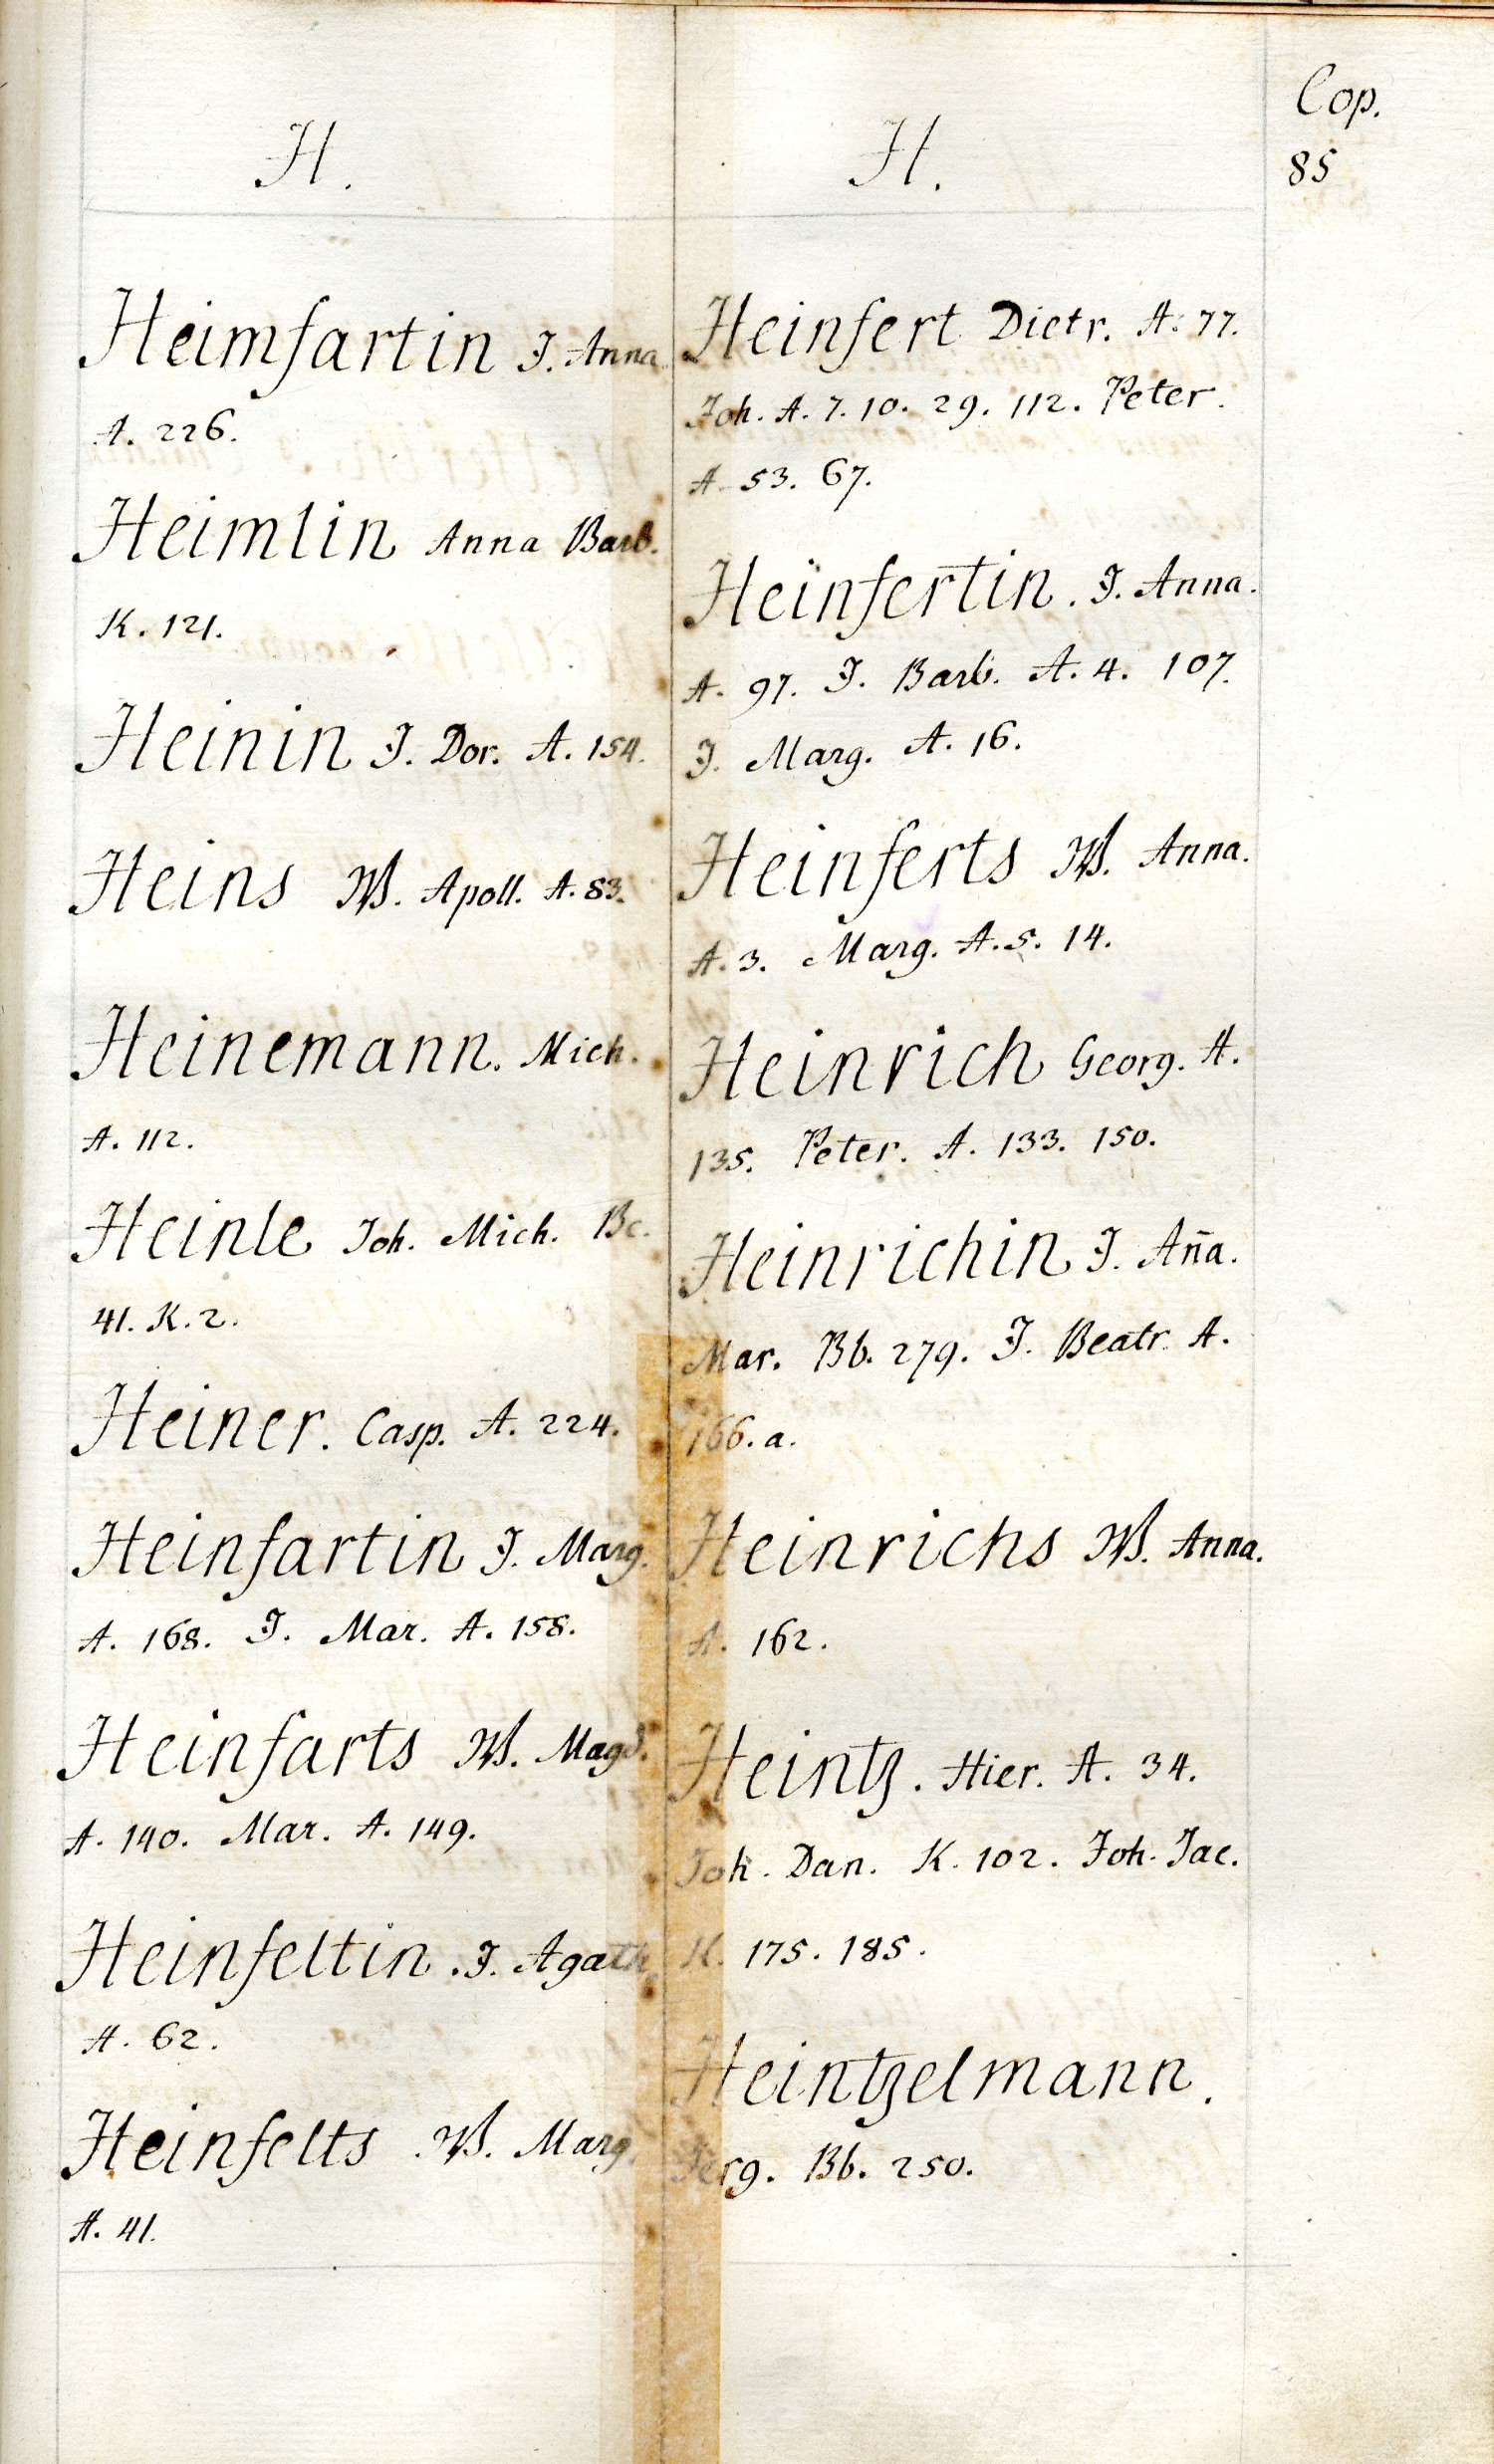 Cop.
85
H.
Heimfartin J. Anna
A. 226.
Heimlin Anna Barb.
K. 121.
Heinin J. Dor. A. 154.
Heins W. Apoll. A. 83.
Heinemann. Mich.
A. 112.
Heinle Joh. Mich. Bc.
41. K. 2.
Heiner. Casp. A. 224.
Heinfartin J. Marg.
A. 168. J. Mar. A. 158.
Heinfarts W. Magd.
A. 140. Mar. A. 149.
Heinfeltin. J. Agath.
A. 62.
Heinfelts W. Marg.
A. 41.
H.
Heinfert Dietr. A. 77.
Joh. A. 7. 10. 29. 112. Peter.
A. 53. 67.
Heinfertin. J. Anna.
A. 97. J. Barb. A. 4. 107.
J. Marg. A. 16.
Heinferts W. Anna.
A. 3. Marg. A. 5. 14.
Heinrich Georg. A.
135. Peter. A. 133. 150.
Heinrichin J. Aña.
Mar. Bb. 279. J. Beatr. A.
166. a.
Heinrichs W. Anna.
A. 162.
Heintz. Hier. A. 34.
Joh. Dan. K. 102. Joh. Jac.
K. 175. 185.
Heintzelmann.
Jerg. Bb. 250.